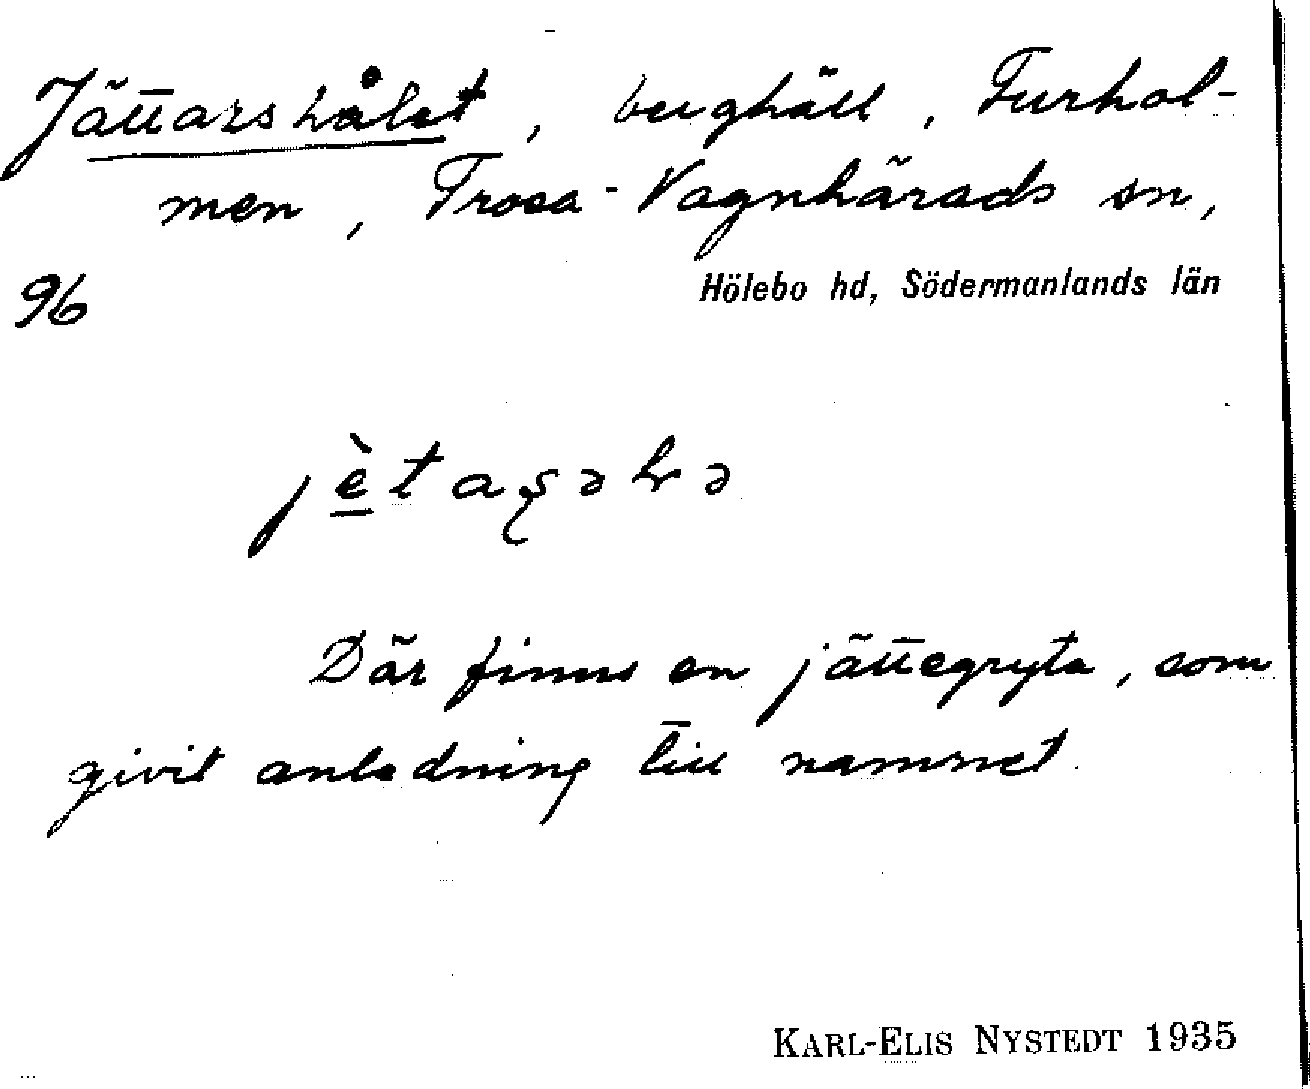 Jättarshålet, berghäll, Furhol-
men, Trosa-Vagnhärads sn,
96
Hölebo hd, Södermanlands län
Där finns en jättegryta, som
givit anledning till namnet.
KARL-ELIS NYSTEDT 1935